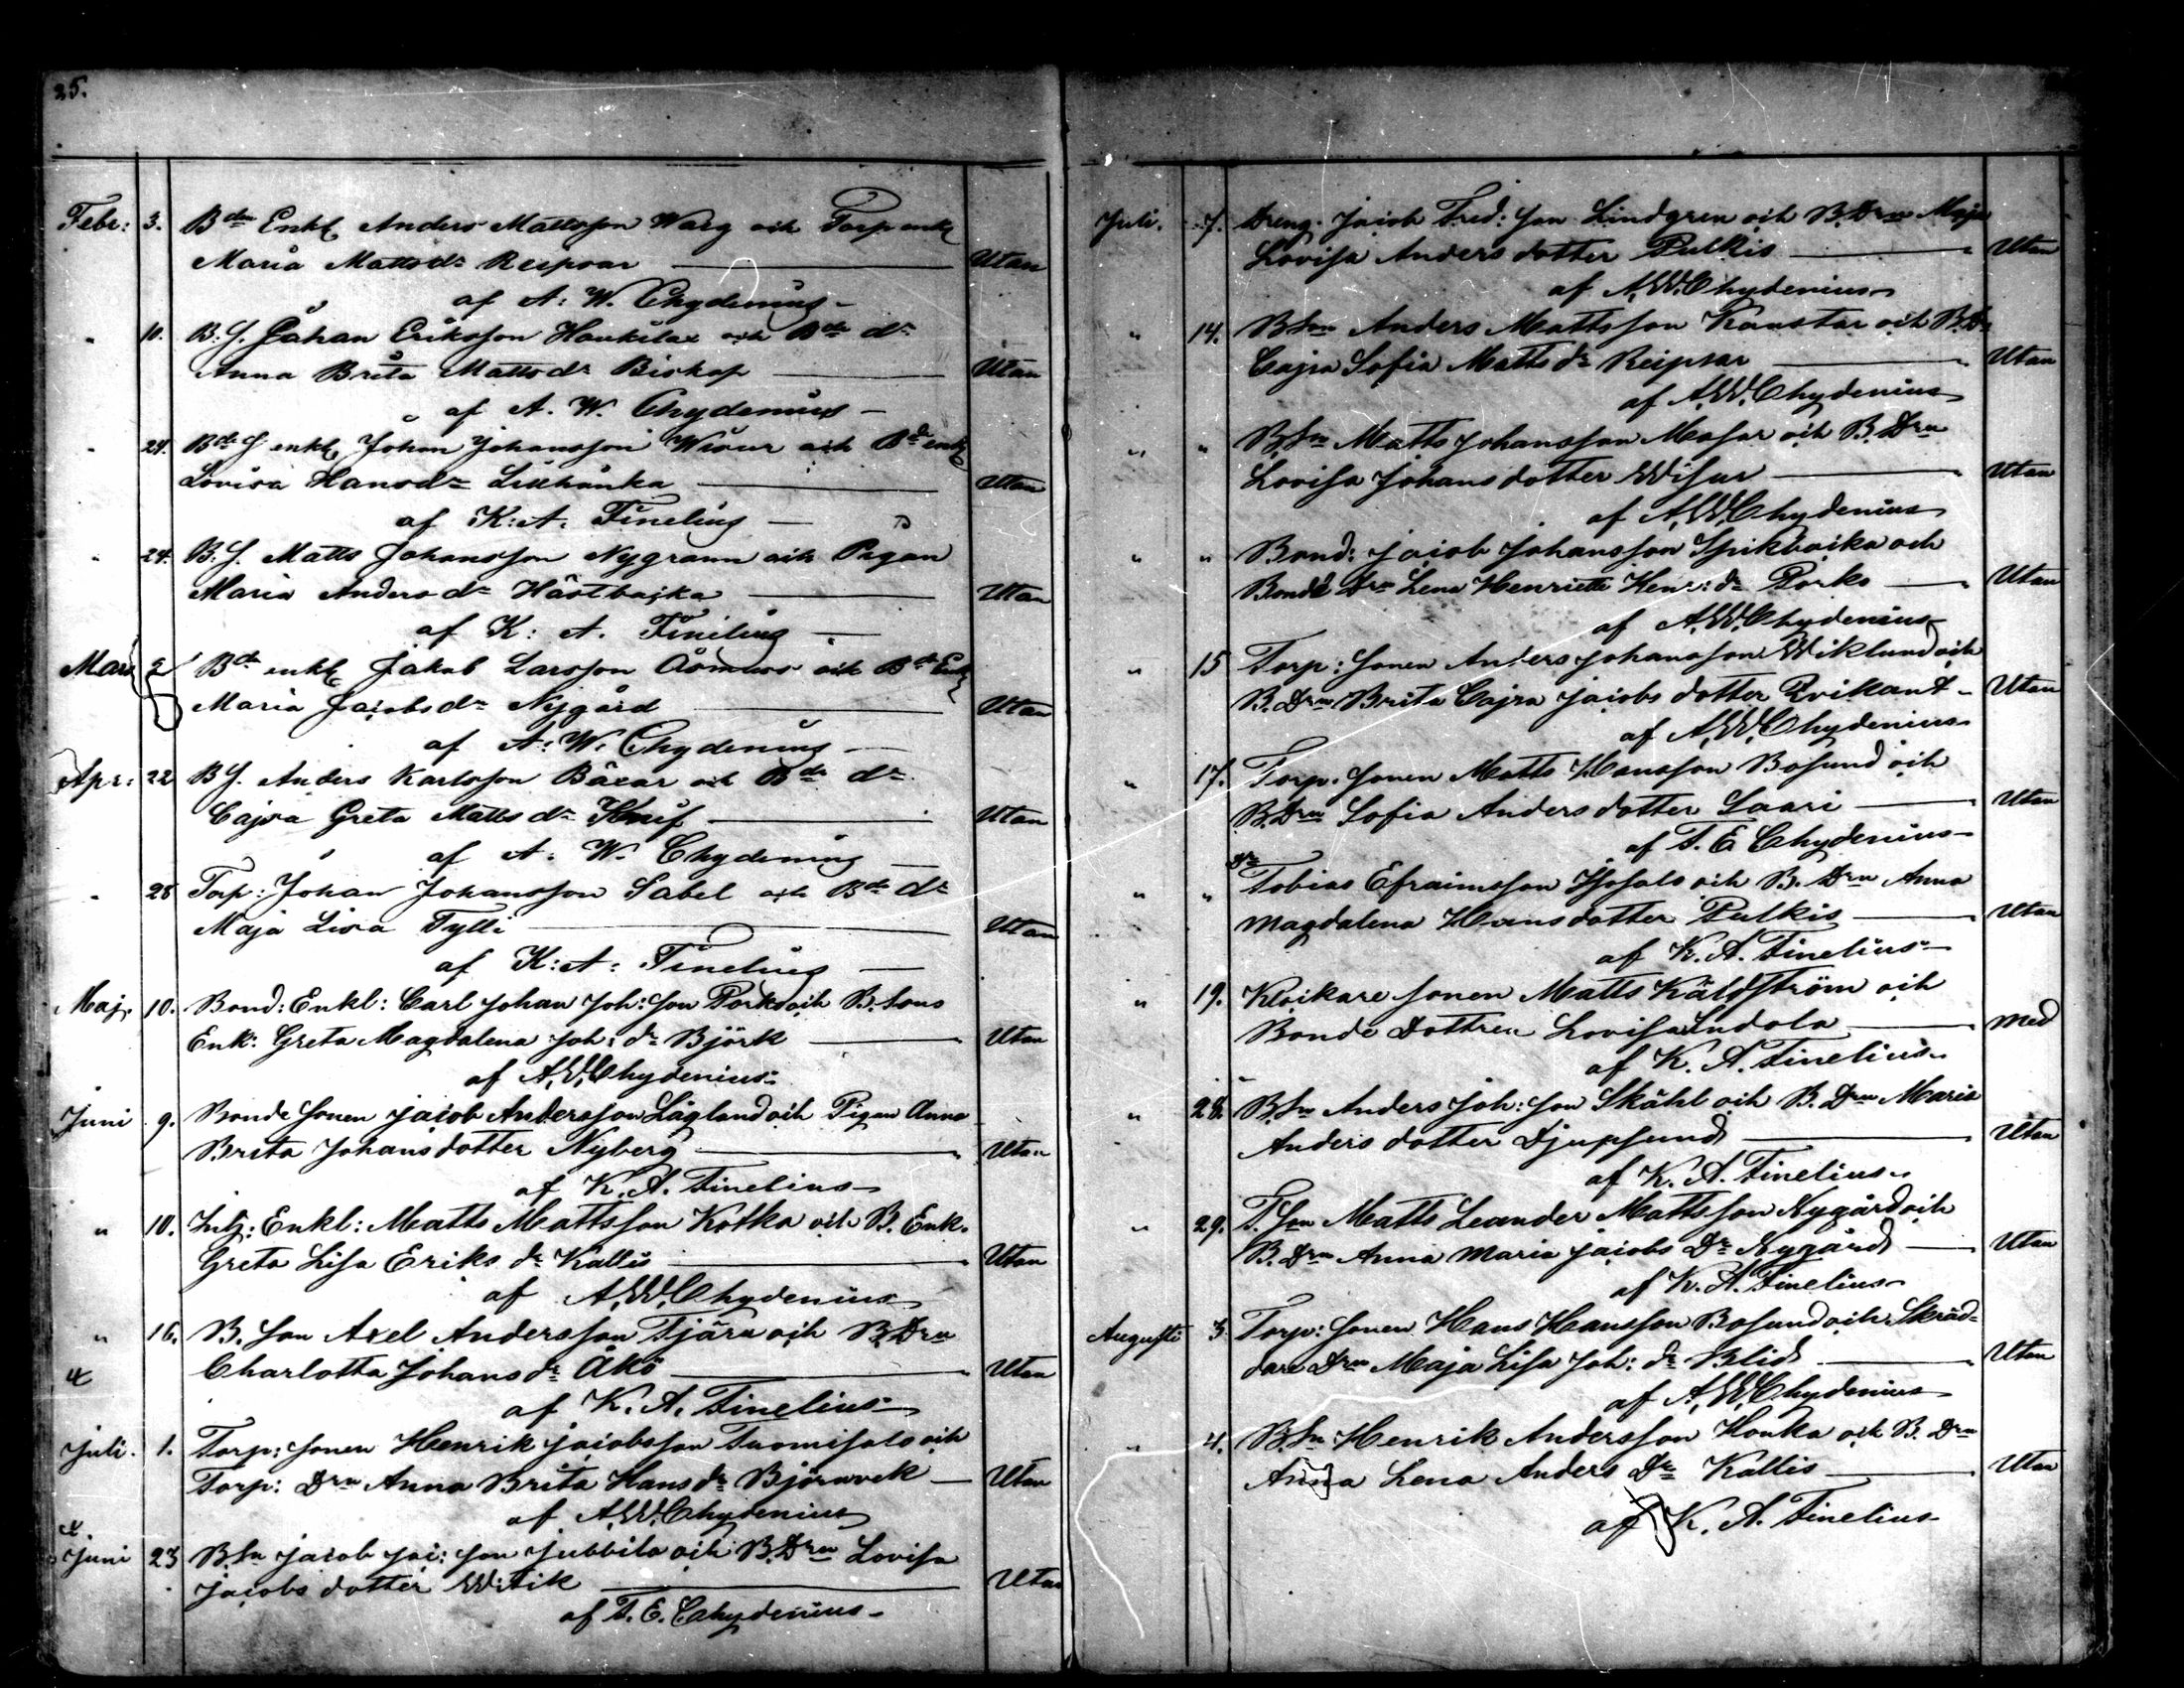 25.
Febr: 3. Bdn Enkl Anders Mattsson Warg och Torp enk
Maria Matts dr Reipsar — Utan
af A: W. Chydenius —
" 10. B. S. Johan Eriksson Hankilax och Bde dr
Anna Brita Matts dr Biskop — Utan
af A. W. Chydenius —
" 24. Bde S enkl Johan Johansson Wisur och Bde enk
Lovisa Hans dr — Utan
af K: A. Finelius —
" 24. B. S. Matts Johansson Nygrann och Pigan
Maria Anders dr Hästbacka — Utan
af K: A. Finelius —
Mars 2 Bde enkl Jakob Larsson Åsmus och Bde Enk
Maria Jacobs dr Nygård — Utan
af A: W. Chydenius —
Apr: 22 B S. Anders Karlsson Bäcar och Bde dr
Cajsa Greta Matts dr — Utan
af A: W. Chydenius —
" 28 Torp: Johan Johansson Sabel och Bde dr
Maja Lisa Tylli — Utan
af K: A: Finelius —
Maj. 10. Bond: Enkl: Carl Johan Joh: son Porko och B. Sons
Enk: Greta Magdalena Joh: dr Björk — Utan
af A. W. Chydenius —
Juni 9. Bonde Sonen Jacob Andersson Lågland och Pigan Anna
Brita Johans dotter Nyberg — Utan
af K. A. Finelius —
" 10. Inh: Enkl: Matts Mattsson Kotka och B. Enk.
Greta Lisa Eriks dr Kallis — Utan
af A. W. Chydenius
" 16. B. Son Axel Andersson Tjäru och B. Drn
Charlotta Johans dr Åkö — Utan
af K. A. Finelius —
Juli. 1. Torp: Sonen Henrik Jacobsson Tuomisalo och
Torp: Drn Anna Brita Hans dr Björnvek — Utan
af A. W. Chydenius
Juni 23 B. Sn Jacob Jac: son Jubbila och B. Drn Lovisa
Jacobs dotter Witik — Utan
af T. E. Chydenius —
Juli. 7. Dreng. Jacob Fred: Son Lindgren och B. Drn Maja
Lovisa Anders dotter Pulkis — Utan
af A. W. Chydenius —
" 14. B Son Anders Mattsson Kanstar och B. Dr
Cajsa Sofia Matts dr Reipsar — Utan
af A. W. Chydenius
" " B. Sn Matts Johansson Masar och B. Drn
Lovisa Johans dotter Wisur — Utan
af A. W. Chydenius
" " Bond: Jacob Johansson Spikbacka och
Bonde Drn Lena Henriette Henr: dr Porko — Utan
af A. W. Chydenius —
" 15 Torp: Sonen Anders Johansson Wiklund och
B. Drn Brita Cajsa Jacobs dotter Evikant — Utan
af A. W. Chydenius —
" 17. Torp. Sonen Matts Hansson Bosund och
B. Drn Sofia Anders dotter Saari — Utan
af T. E. Chydenius —
" " Dr Tobias Efraimsson och B. Drn Anna
Magdalena Hans dotter Pulkis — Utan
af K. A. Finelius —
" 19. Klockare Sonen Matts Källström och
Bonde Dottren Lovisa Indola — Med
af K. A. Finelius —
" 28. B. Sn Anders Joh: Son Skåhl och B. Drn Maria
Anders dotter Djupsund — Utan
af K. A. Finelius —
" 29. T. Son Matts Leander Mattsson Nygård och
B. Drn Anna Maria Jacobs Dr Nygård — Utan
af K. A. Finelius —
Augusti 3 Torp: Sonen Hans Hansson Bosund och Skräd-
dare Drn Maja Lisa Joh: dr Blid — Utan
af A. W. Chydenius
" 4. B. Sn Henrik Andersson Honka och B. Drn
Anna Lena Anders Dr Kallis — Utan
af K. A. Finelius —